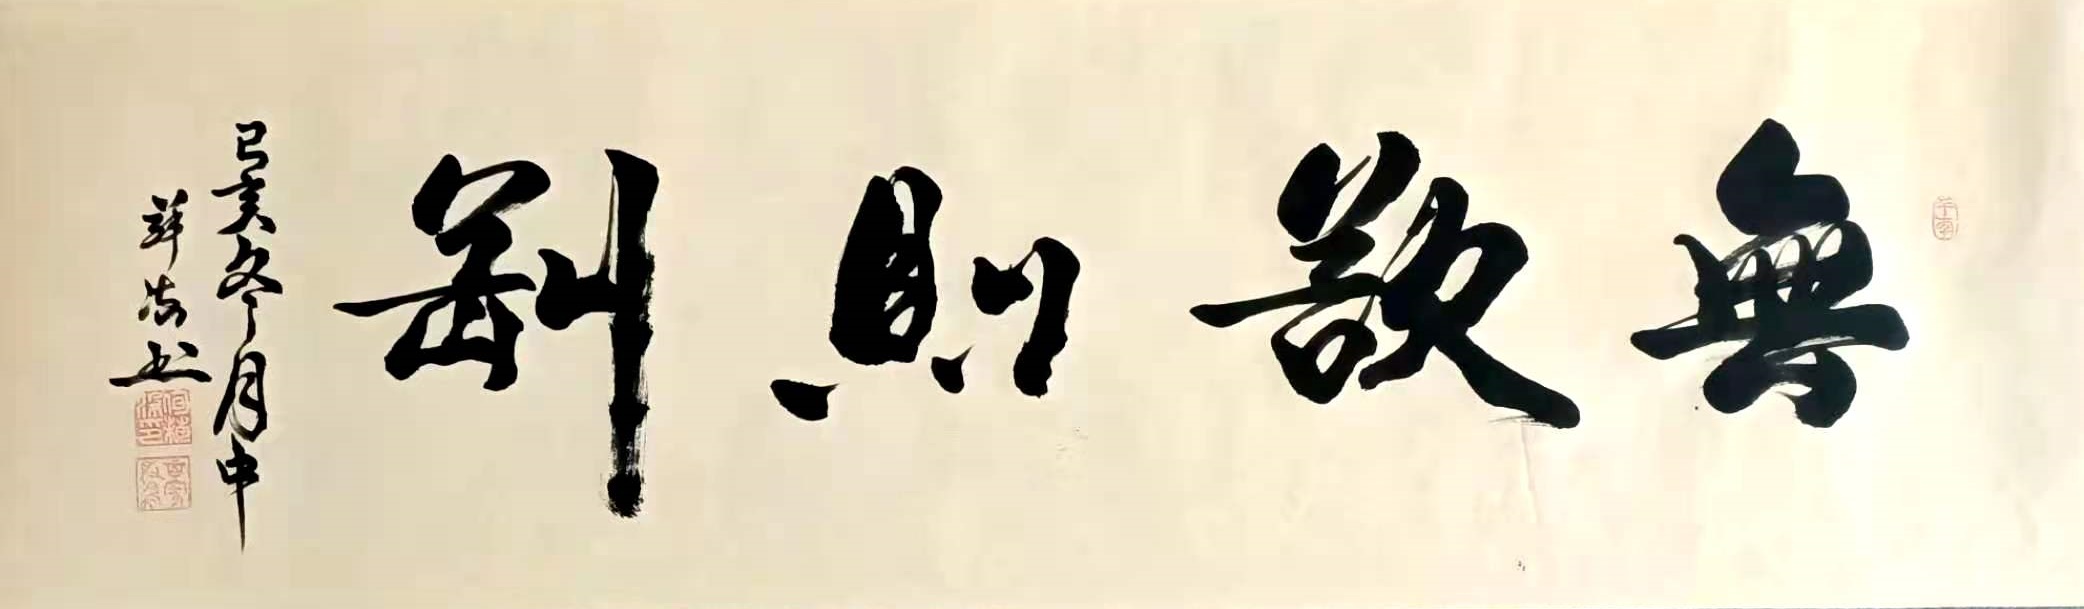 無欲則剛
己亥冬月中
祥洪书